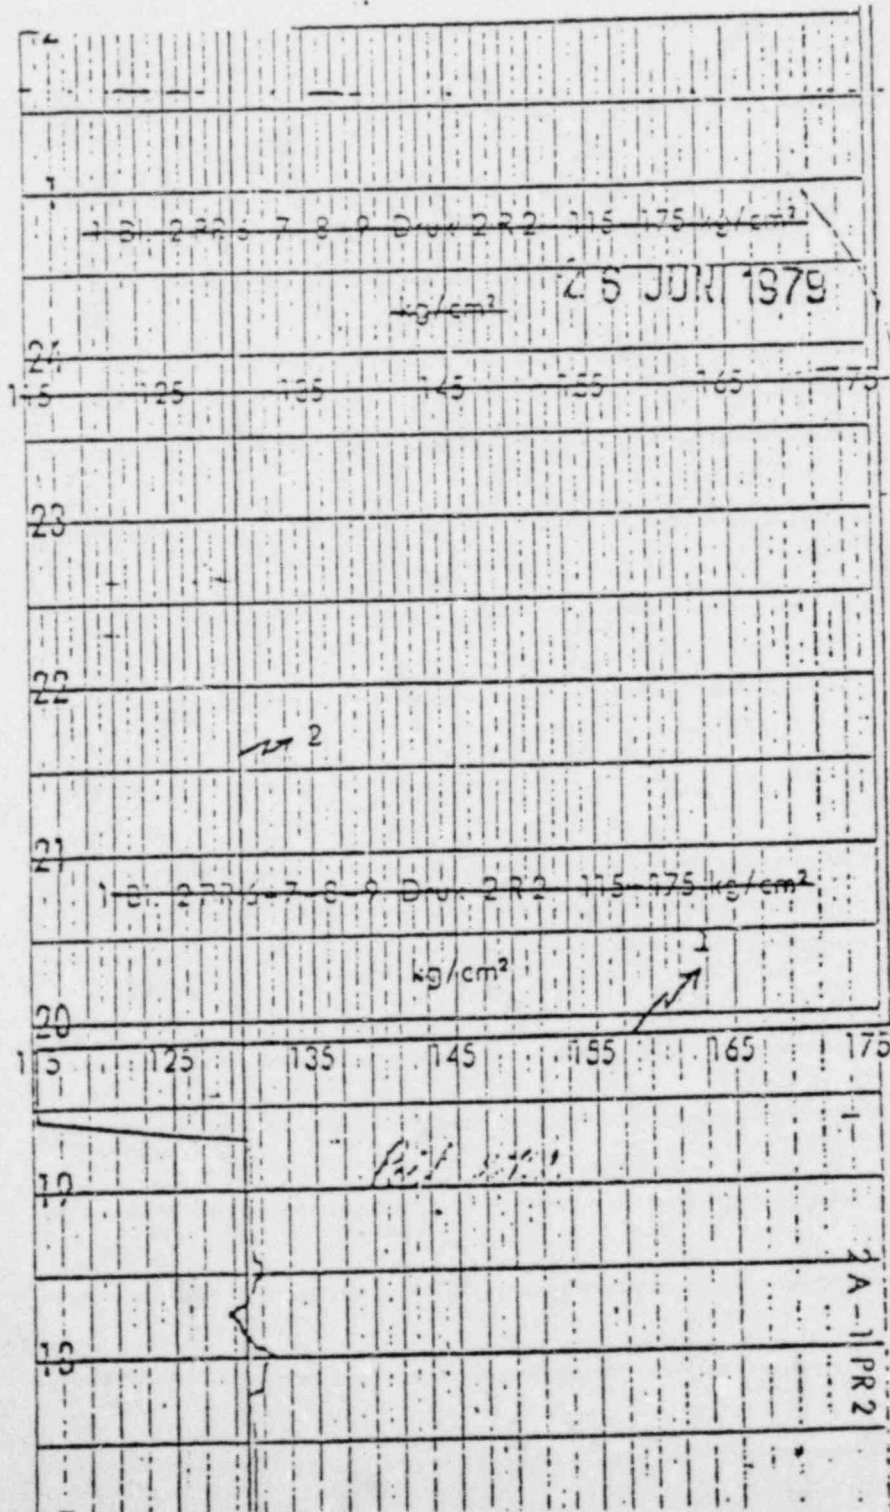 2
1
1 BI 2RR6-7-8-9 Druk 2R2 115-175 kg/cm²
26 JUNI 1979
kg/cm²
24
115 125 135 145 155 165 175
23
22
2
21
1 BI 2RR6-7-8-9 Druk 2R2 115-175 kg/cm²
1
kg/cm²
20
115 125 135 145 155 165 175
19
2A-1 PR2
18